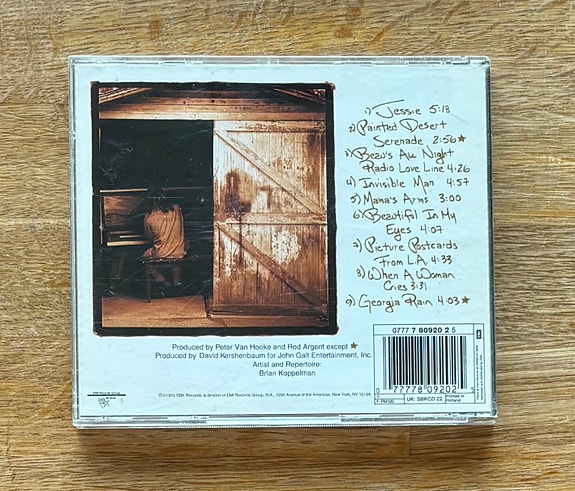 1) Jessie 5:18
2) Painted Desert
Serenade 2:56★
3) Beau's All Night
Radio Love Line 4:26
4) Invisible Man 4:57
5) Mama's Arms 3:00
6) Beautiful In My
Eyes 4:07
7) Picture Postcards
From L.A. 4:33
8) When A Woman
Cries 3:31
9) Georgia Rain 4:03★
Produced by Peter Van Hooke and Rod Argent except ★
Produced by David Kershenbaum for John Galt Entertainment, Inc.
Artist and Repertoire:
Brian Koppelman
0777 7 80920 2 5
0 77778 09202
UK: SBKCD 22
Printed in
Holland
EMI Records Group